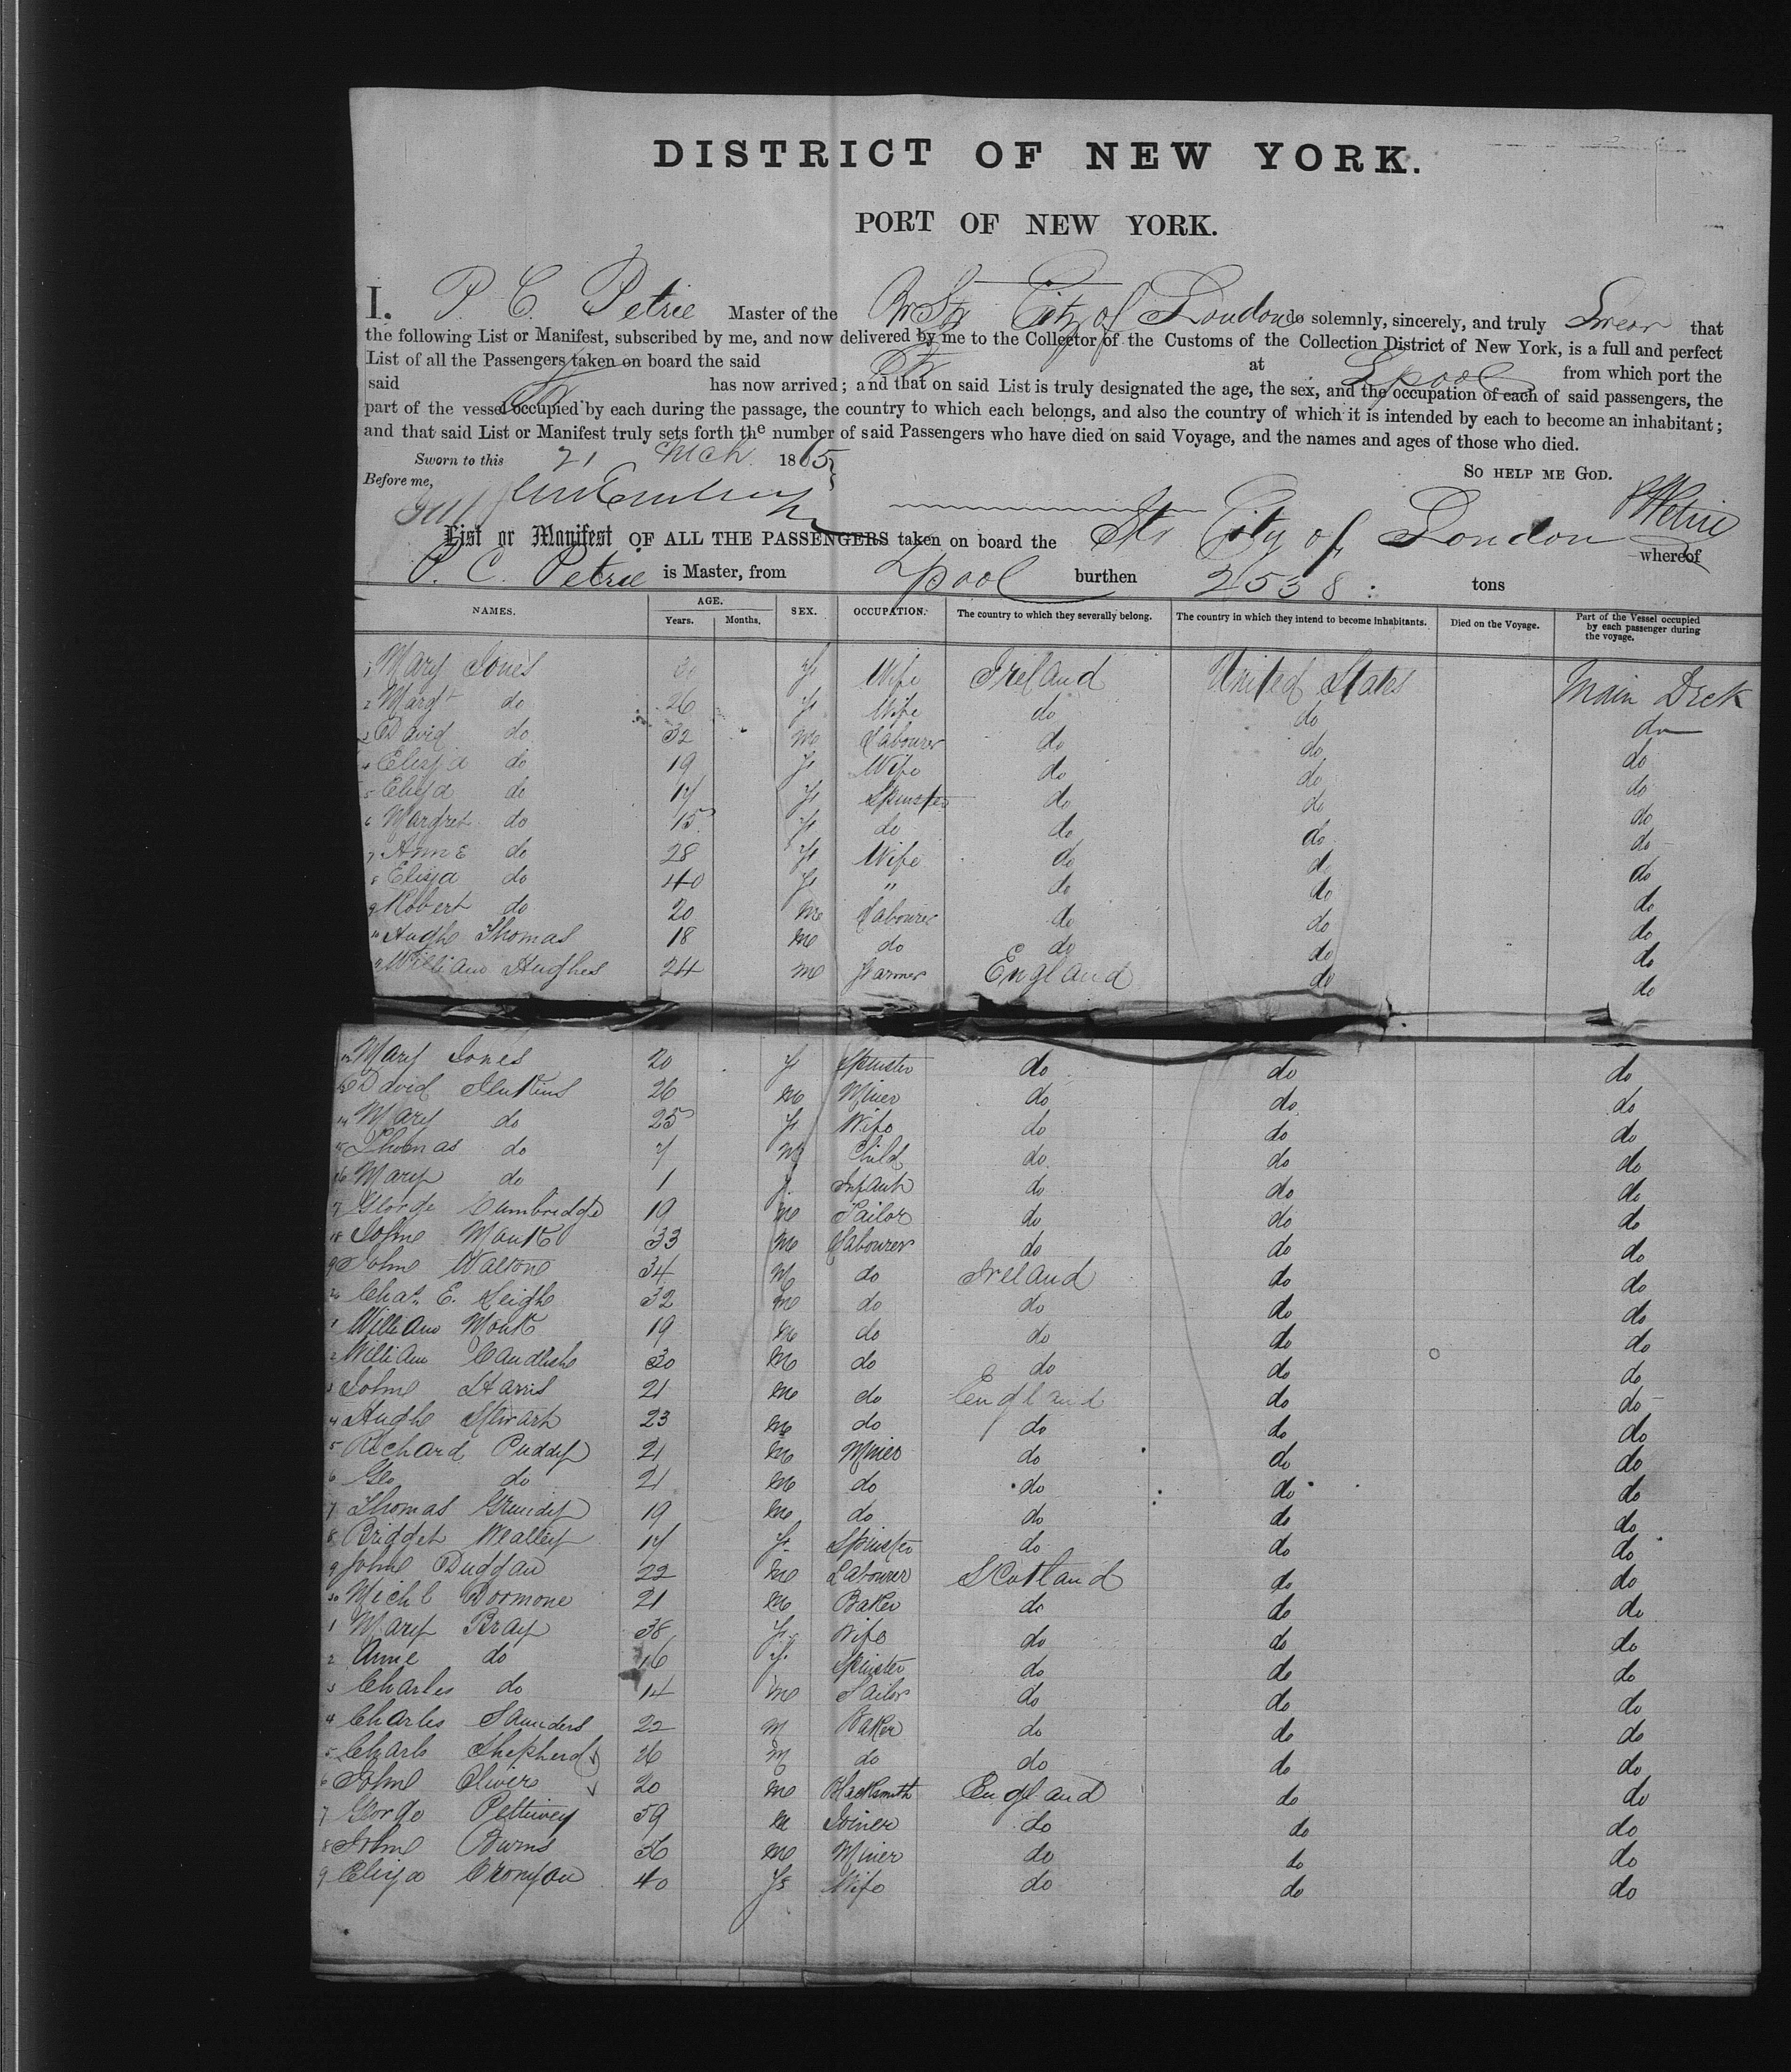 DISTRICT OF NEW YORK.
PORT OF NEW YORK.
I. P. C. Petrie Master of the Br Str City of London do solemnly, sincerely, and truly Swear that
the following List or Manifest, subscribed by me, and now delivered by me to the Collector of the Customs of the Collection District of New York, is a full and perfect
List of all the Passengers taken on board the said Str at Lpool from which port the
said Str has now arrived; and that on said List is truly designated the age, the sex, and the occupation of each of said passengers, the
part of the vessel occupied by each during the passage, the country to which each belongs, and also the country of which it is intended by each to become an inhabitant;
and that said List or Manifest truly sets forth the number of said Passengers who have died on said Voyage, and the names and ages of those who died.
Sworn to this 21 Mch 1865 SO HELP ME GOD.
Before me,
List or Manifest OF ALL THE PASSENGERS taken on board the Str City of London whereof
P. C. Petrie is Master, from Lpool burthen 2538 : tons
NAMES. AGE. Years. Months. SEX. OCCUPATION. The country to which they severally belong. The country in which they intend to become inhabitants. Died on the Voyage. Part of the Vessel occupied by each passenger during the voyage.
1 Mary Jones 30 f Wife Ireland United States Main Deck
2 Margt do 26 f Wife do do do
3 David do 32 m Labourer do do do
4 Elisja do 19 f Wife do do do
5 Elisja do 17 f Spinster do do do
6 Margret do 15 f do do do do
7 Anne do 28 f Wife do do do
8 Elisja do 40 f " do do do
9 Robert do 20 m Labourer do do do
10 Hugh Thomas 18 m do do do do
11 William Hughes 24 m Farmer England do do
12 Mary Jones 20 f Spinster do do do
13 David Jenkins 26 m Miner do do do
14 Mary do 25 f Wife do do do
15 Thomas do 7 m Child do do do
16 Mary do 1 f Infant do do do
7 George Cambridge 19 m Tailor do do do
18 John Monk 33 m Labourer do do do
9 John Walton 34 m do Ireland do do
20 Chas. E. Keigh 32 m do do do do
1 William Monk 19 m do do do do
2 William Candlish 30 m do do do do
3 John Harris 21 m do England do do
4 Hugh Stewart 23 m do do do do
5 Richard Puddy 21 m Miner do do do
6 Geo do 21 m do do do do
7 Thomas Grundy 19 m do do do do
8 Bridget Mealley 17 f Spinster do do do
9 John Duggan 22 m Labourer Scotland do do
30 Michl Dormone 21 m Baker do do do
1 Mary Bray 38 f Wife do do do
2 Anne do 16 f Spinster do do do
3 Charles do 14 m Tailor do do do
4 Charles Saunders 22 m Baker do do do
5 Charls Shepherd 26 m do do do do
6 John Olivers 20 m Blacksmith England do do
7 George Pettivey 59 m Joiner do do do
8 John Burns 36 m Miner do do do
9 Elisja Crompan 40 f Wife do do do